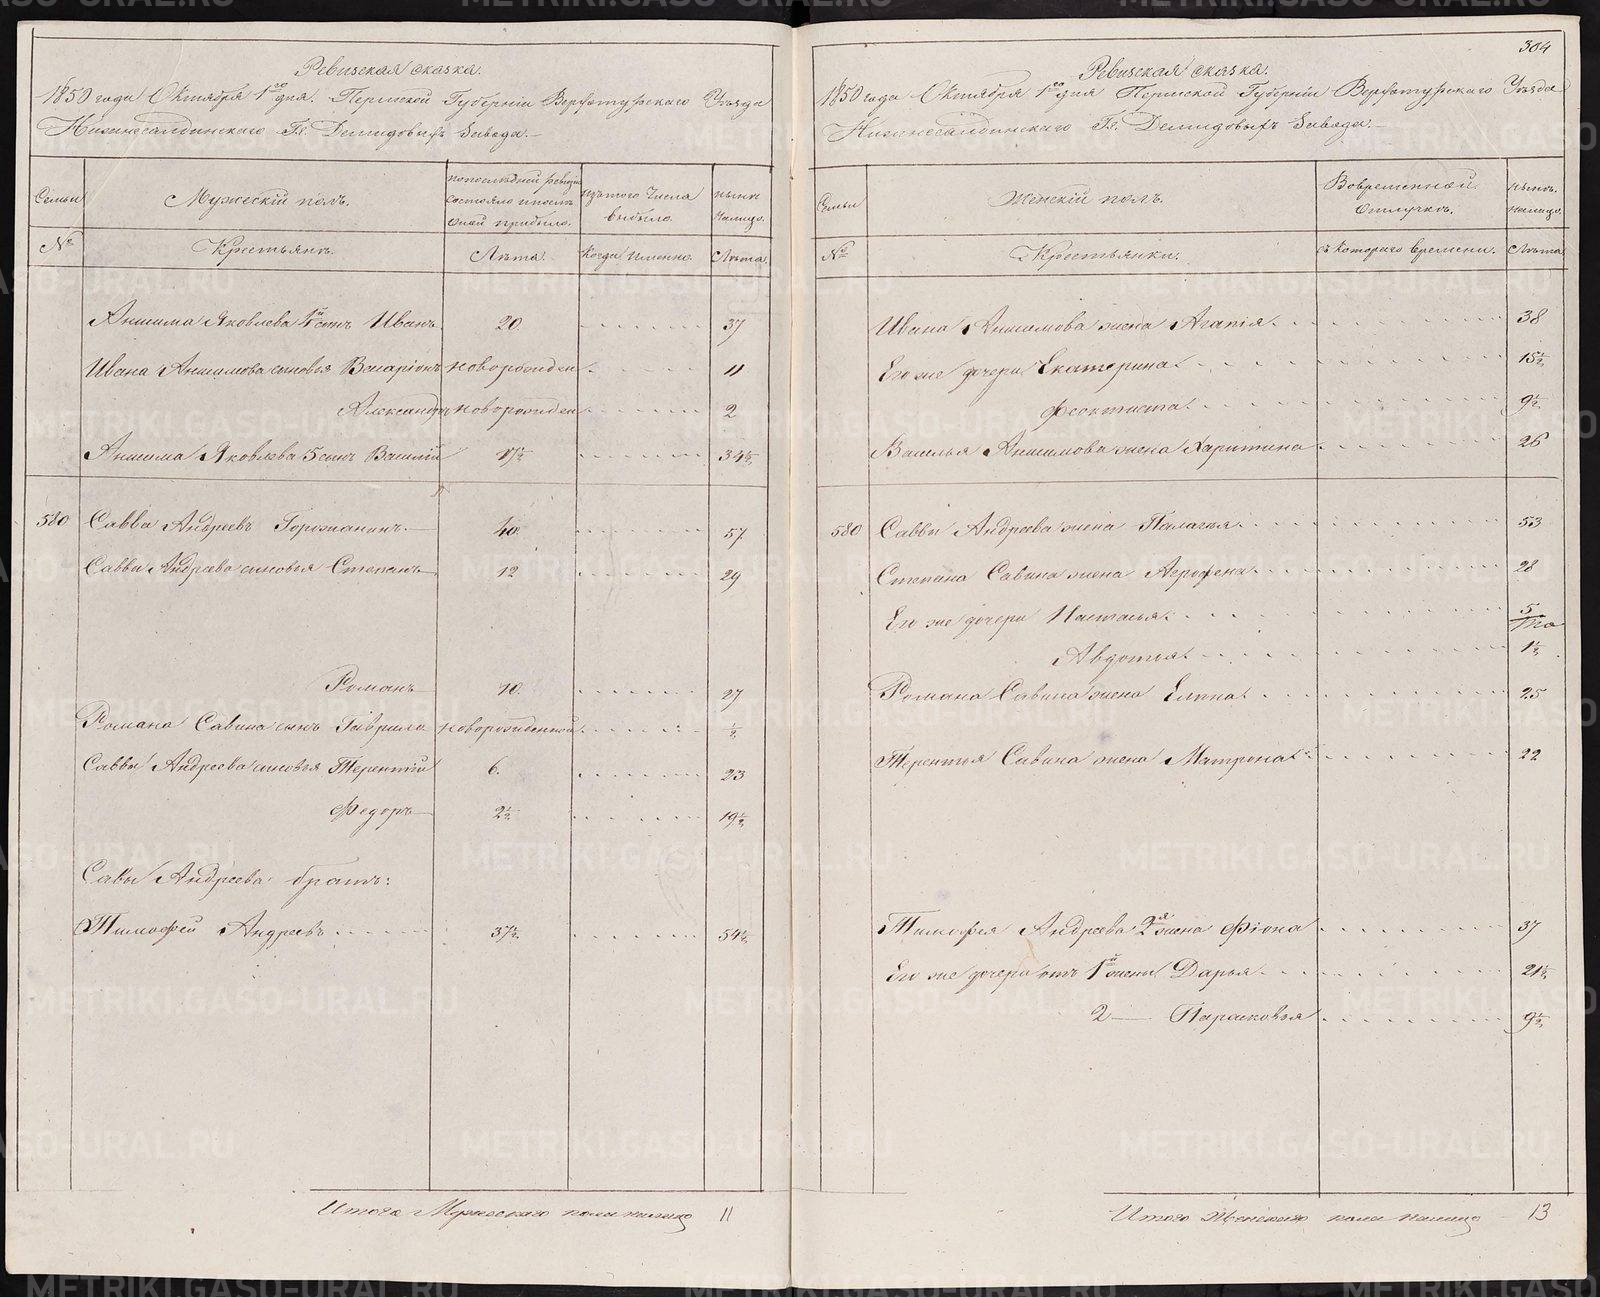 Ревизская сказка.
1850 года Октября 1го дня. Пермской Губерніи Верхотурскаго Уѣзда
Нижнесалдинскаго Гг. Демидовыхъ Завода.
Семьи
Мужескій полъ.
по последней ревизіи состояло и после оной прибыло.
изътого Числа выбыло.
нынѣ налицо.
№
Крестьянъ.
Лѣта.
Когда именно.
Лѣта.
Анисима Яковлева 4й сынъ Иванъ 20. 37
Ивана Анисимова сыновья Виссаріонъ новорожден 11
Александръ новорожден 2
Анисима Яковлева 5 сынъ Василій 17½ 34½
580 Савва Андреевъ Горожанинъ. 40. 57
Саввы Андреева сыновья Степанъ 12 29
Романъ 10. 27
Романа Савина сынъ Гаврило новорожденной ½
Саввы Андреева сыновья Терентій 6. 23
Федоръ 2½ 19½
Савы Андреева братъ:
Тимофей Андреевъ 37½ 54½
Итого Мужескаго пола налицо 11
304
Ревизская сказка.
1850 года Октября 1го дня Пермской Губерніи Верхотурскаго Уѣзда
Нижнесалдинскаго Гг. Демидовыхъ Завода.
Семьи
Женскій полъ.
Вовременной отлучкѣ.
нынѣ налицо.
№
Крестьянки.
съ котораго времени.
Лѣта
Ивана Анисимова жена Агапія 38
Его же дочери Екатерина 15½
Феоктиста 9½
Василья Анисимова жена Харитина 26
580 Саввы Андреева жена Палагья 53
Степана Савина жена Агрофена 28
Его же дочери Настасья 5/ме
Авдотья 1½
Романа Савина жена Елена 25
Терентья Савина жена Матрона 22
Тимофея Андреева 2я жена Фіона 37
Его же дочери отъ 1й жены Дарья 21½
2 — Парасковья 9½
Итого Женскаго пола налицо 13
METRIKI.GASO-URAL.RU